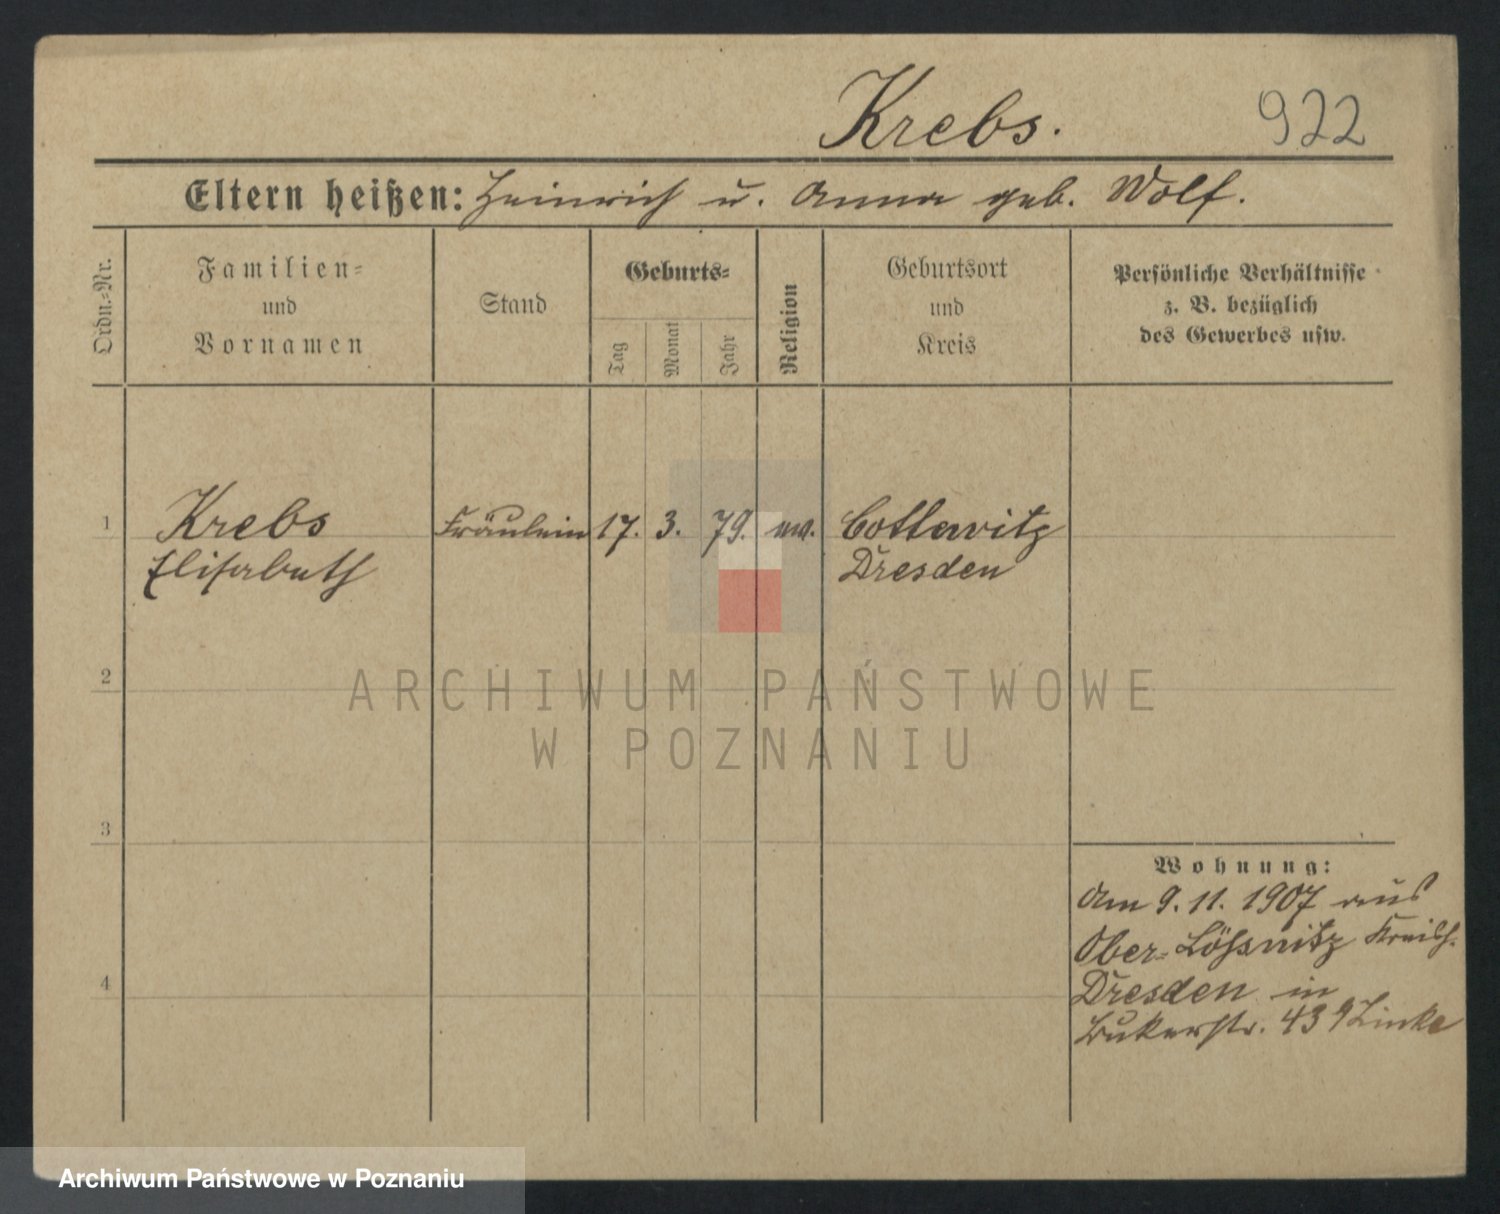 Krebs. 922
Eltern heißen: Heinrich u. Anna geb. Wolf.
Ordn.-Nr.
Familien-
und
Vornamen
Stand
Geburts-
Tag
Monat
Jahr
Religion
Geburtsort
und
Kreis
Persönliche Verhältnisse
z. B. bezüglich
des Gewerbes usw.
1 Krebs Fräulein 17. 3. 79. ev. Cottawitz
Elisabeth Dresden
2
ARCHIWUM PAŃSTWOWE
W POZNANIU
3
Wohnung:
Am 9. 11. 1907 aus
Ober-Lößnitz
4
Dresden in
43 Linke
Archiwum Państwowe w Poznaniu